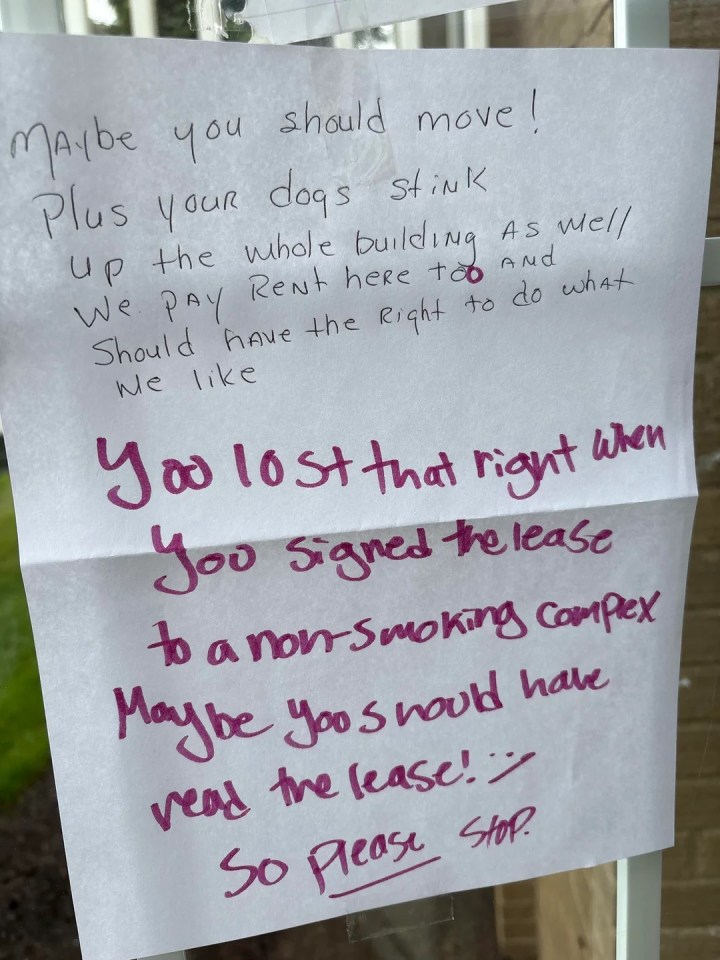 MAybe you should move!
Plus your dogs stink
up the whole building As well
We PAY Rent here too AND
Should have the Right to do what
We like
You lost that right when
You signed the lease
to a non-smoking complex
Maybe you should have
read the lease! :)
So please stop.